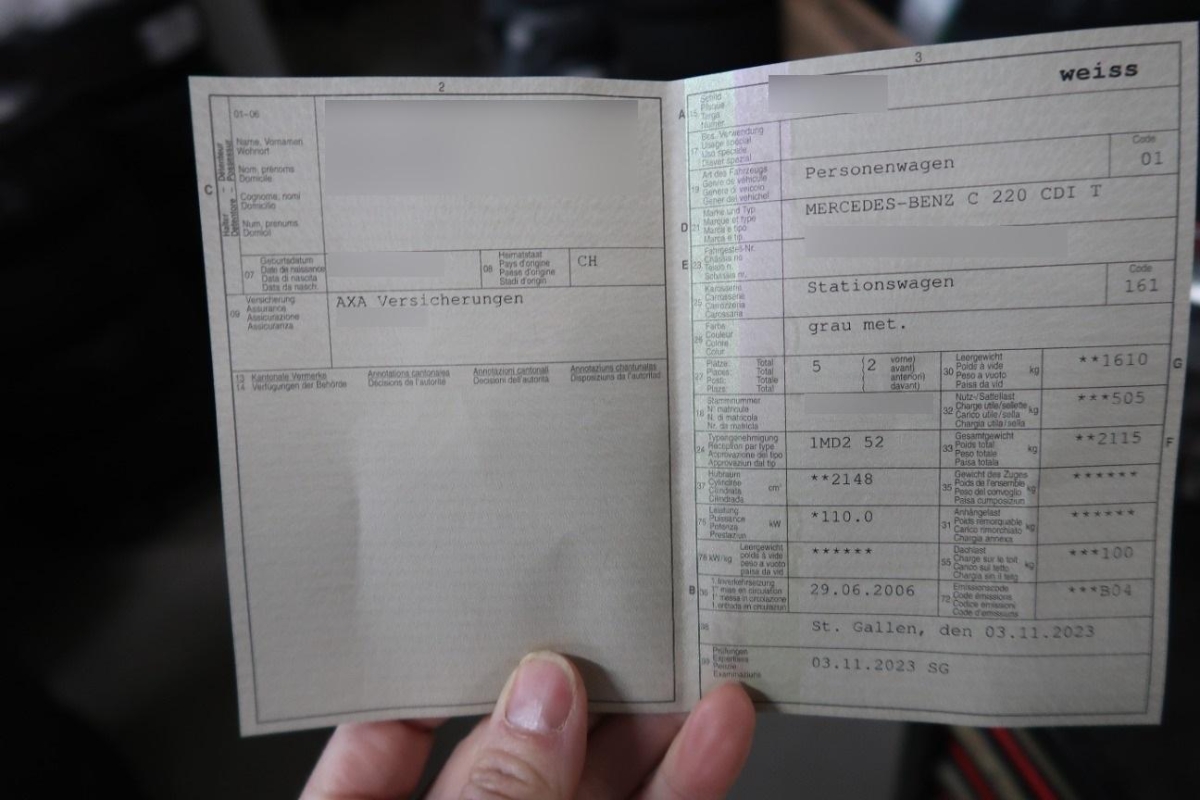 2
01-06
C
Halter - Détenteur
Detentore - Possessur
Name, Vornamen
Wohnort
Nom, prénoms
Domicile
Cognome, nomi
Domicilio
Num, prenums
Domicil
07
Geburtsdatum
Date de naissance
Data di nascita
Data da nasch.
08
Heimatstaat
Pays d'origine
Paese d'origine
Stadi d'origin
CH
09
Versicherung
Assurance
Assicurazione
Assicuranza
AXA Versicherungen
13 Kantonale Vermerke Annotations cantonales Annotazioni cantonali Annotaziuns chantunalas
14 Verfügungen der Behörde Décisions de l'autorité Decisioni dell'autorità Disposiziuns da l'autoritad
3
weiss
A 15
Schild
Plaque
Targa
Numer
17
Bes. Verwendung
Usage spécial
Uso speciale
Diever spezial
19
Art des Fahrzeugs
Genre de véhicule
Genere di veicolo
Gener dal vehichel
Personenwagen
Code
01
D 21
Marke und Typ
Marque et type
Marca e tipo
Marca e tip
MERCEDES-BENZ C 220 CDI T
E 23
Fahrgestell-Nr.
Châssis no
Telaio n.
Schassis nr.
25
Karosserie
Carrosserie
Carrozzeria
Carossaria
Stationswagen
Code
161
26
Farbe
Couleur
Colore
Colur
grau met.
27
Plätze: Total
Places: Total
Posti: Totale
Plazs: Total
5
(2
vorne)
avant)
anteriori)
davant)
30
Leergewicht
Poids à vide
Peso a vuoto
Paisa da vid
kg
**1610
G
18
Stammnummer
N° matricule
N. di matricola
Nr. da matricla
32
Nutz-/Sattellast
Charge utile/sellette
Carico utile/sella
Chargia utila/sella
kg
***505
24
Typengenehmigung
Réception par type
Approvazione del tipo
Approvaziun dal tip
1MD2 52
33
Gesamtgewicht
Poids total
Peso totale
Paisa totala
kg
**2115
F
37
Hubraum
Cylindrée
Cilindrata
Cilindrada
cm³
**2148
35
Gewicht des Zuges
Poids de l'ensemble
Peso del convoglio
Paisa cumposiziun
kg
******
76
Leistung
Puissance
Potenza
Prestaziun
kW
*110.0
31
Anhängelast
Poids remorquable
Carico rimorchiato
Chargia annexa
kg
******
78 kW/kg
Leergewicht
poids à vide
peso a vuoto
paisa da vid
******
55
Dachlast
Charge sur le toit
Carico sul tetto
Chargia sin il tetg
kg
***100
B 36
1. Inverkehrsetzung
1re mise en circulation
1a messa in circolazione
1. entrada en circulaziun
29.06.2006
72
Emissionscode
Code émissions
Codice emissioni
Code d'emissiuns
***B04
38
St. Gallen, den 03.11.2023
39
Prüfungen
Expertises
Perizie
Examinaziuns
03.11.2023 SG